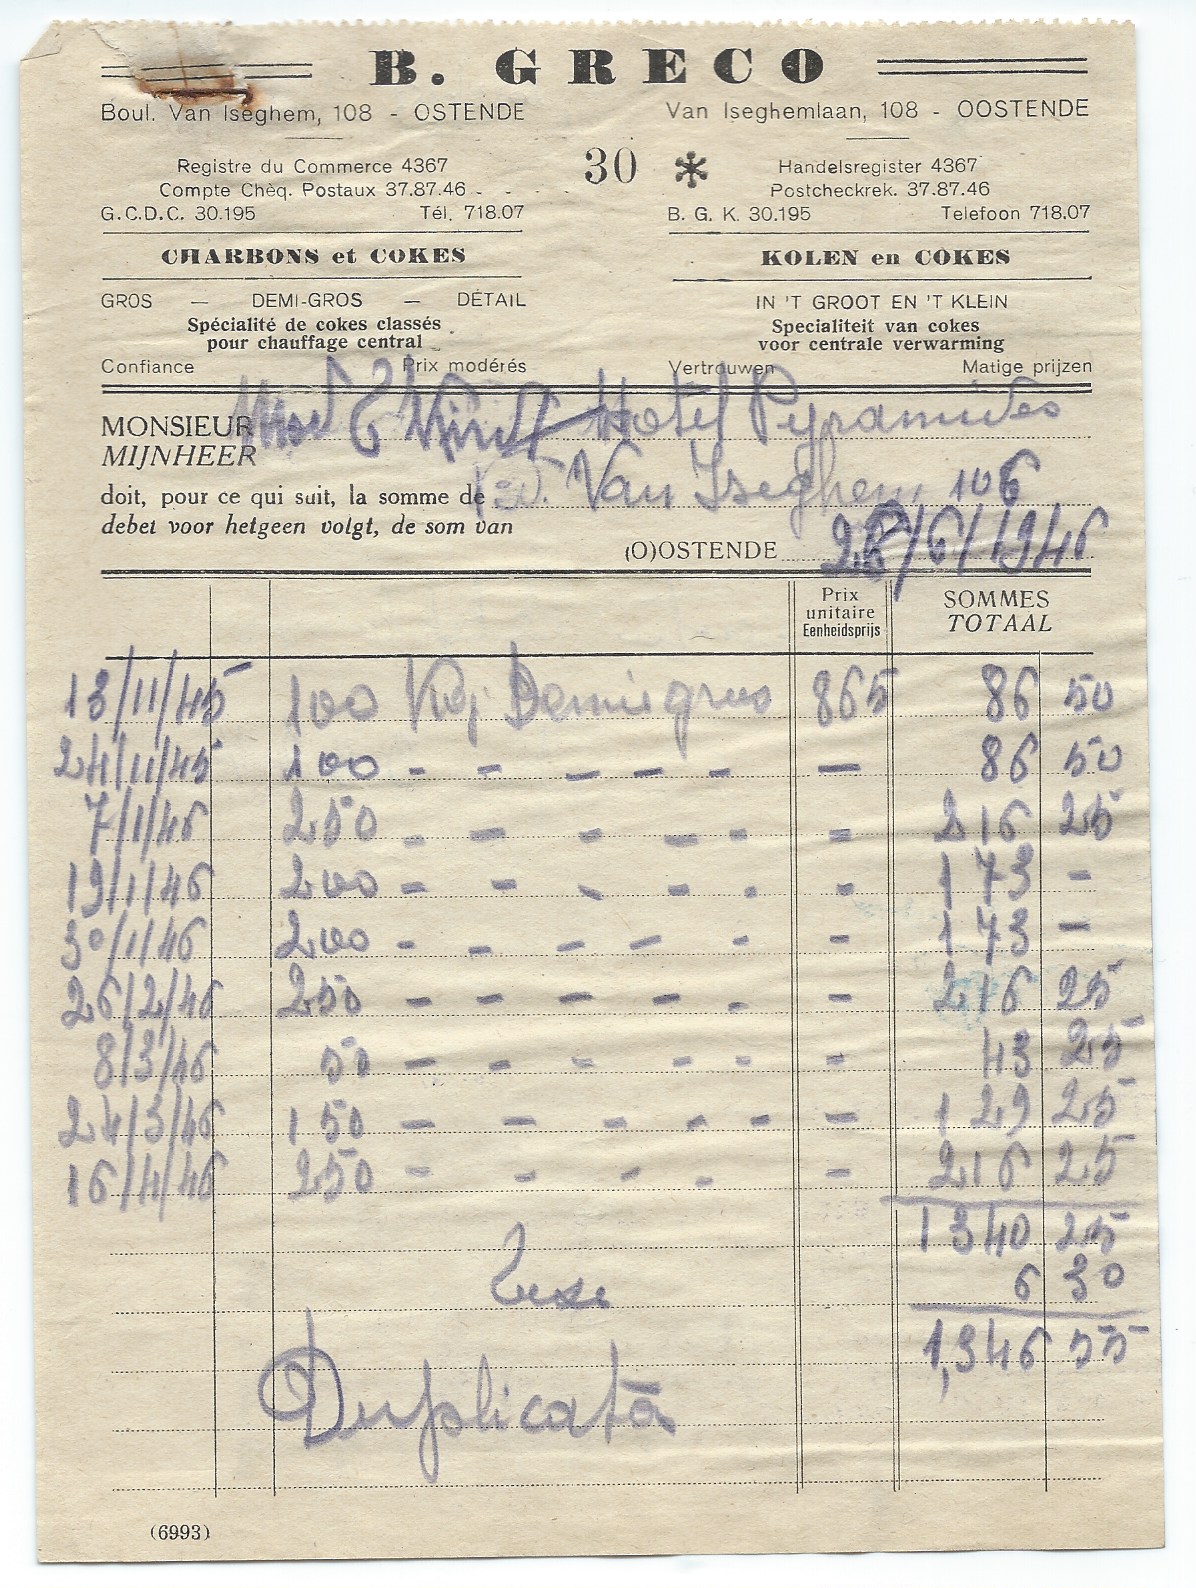 B. GRECO
Boul. Van Iseghem, 108 - OSTENDE
Van Iseghemlaan, 108 - OOSTENDE
30 *
Registre du Commerce 4367
Compte Chèq. Postaux 37.87.46
G.C.D.C. 30.195 Tél. 718.07
Handelsregister 4367
Postcheckrek. 37.87.46
B. G. K. 30.195 Telefoon 718.07
CHARBONS et COKES
KOLEN en COKES
GROS — DEMI-GROS — DÉTAIL
Spécialité de cokes classés
pour chauffage central
Confiance Prix modérés
IN 'T GROOT EN 'T KLEIN
Specialiteit van cokes
voor centrale verwarming
Vertrouwen Matige prijzen
MONSIEUR Hotel Pyramides
MIJNHEER
doit, pour ce qui suit, la somme de Van Iseghem 106
debet voor hetgeen volgt, de som van
(O)OSTENDE 28/6/1946
Prix unitaire SOMMES
Eenheidsprijs TOTAAL
13/11/45 100 Kg 865 86 50
24/11/45 100 - - - - - — 86 50
7/1/46 250 - - - - - = 216 25
19/1/46 200 - - - - - - 173 -
30/1/46 200 - - - - - - 173 -
26/2/46 250 - - - - - - 216 25
8/3/46 50 - - - - - - 43 25
24/3/46 150 - - - - - - 129 25
16/4/46 250 - - - - - 216 25
1340 25
6 30
1,346 55
Duplicata
(6993)